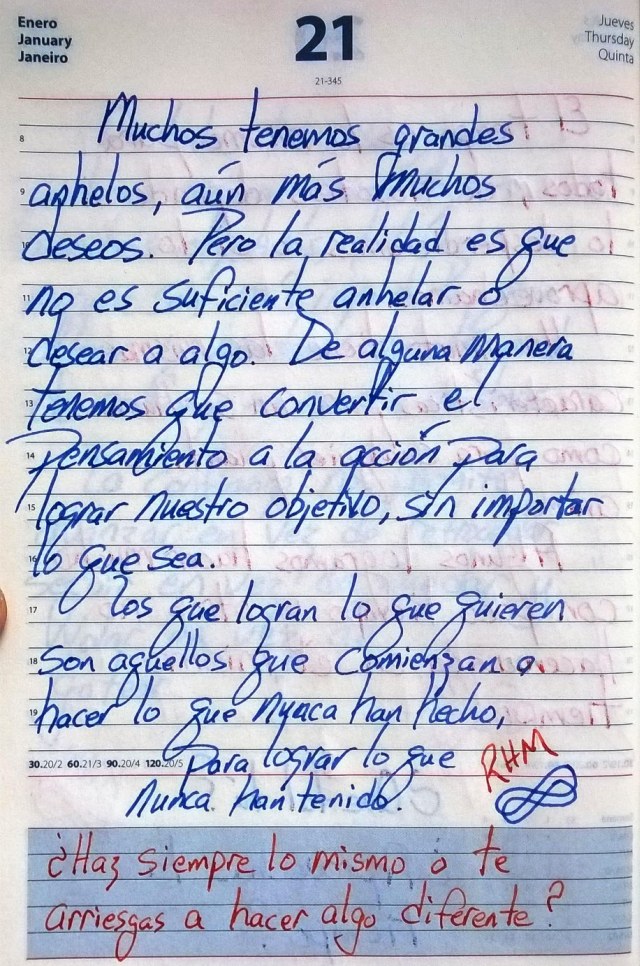 Enero
January
Janeiro
21
21-345
Jueves
Thursday
Quinta
8
Muchos tenemos grandes
9 anhelos, aún más muchos
10 deseos. Pero la realidad es que
11 no es suficiente anhelar o
12 desear a algo. De alguna manera
13 tenemos que convertir el
14 pensamiento a la acción para
15 lograr nuestro objetivo, sin importar
16 lo que sea.
17 Los que logran lo que quieren
18 son aquellos que comienzan a
19 hacer lo que nunca han hecho,
30.20/2 60.21/3 90.20/4 120.20/5
para lograr lo que
nunca han tenido.
RHM
¿Haz siempre lo mismo o te
arriesgas a hacer algo diferente?